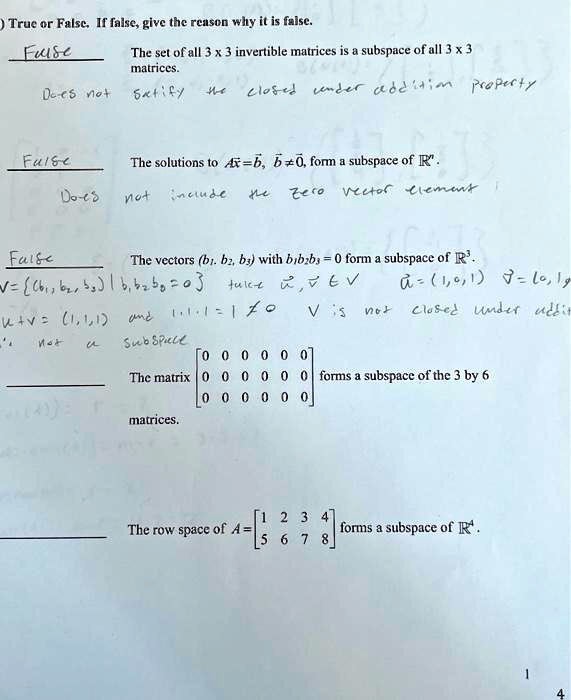 ) True or False. If false, give the reason why it is false.
False The set of all 3 x 3 invertible matrices is a subspace of all 3 x 3
matrices.
Does not satisfy the closed under addition property
False The solutions to Ax⃗=b⃗, b⃗≠0⃗, form a subspace of ℝⁿ.
Does not include the zero vector element
False The vectors (b₁, b₂, b₃) with b₁b₂b₃ = 0 form a subspace of ℝ³.
V={(b₁, b₂, b₃) | b₁b₂b₃=0} take u⃗, v⃗ ∈ V u⃗=(1,0,1) v⃗=(0,1,
u+v= (1,1,1) and 1·1·1=1≠0 V is not closed under addit
not a subspace
0 0 0 0 0 0
The matrix 0 0 0 0 0 0 forms a subspace of the 3 by 6
0 0 0 0 0 0
matrices.
1 2 3 4
The row space of A = forms a subspace of ℝ⁴.
5 6 7 8
1
4